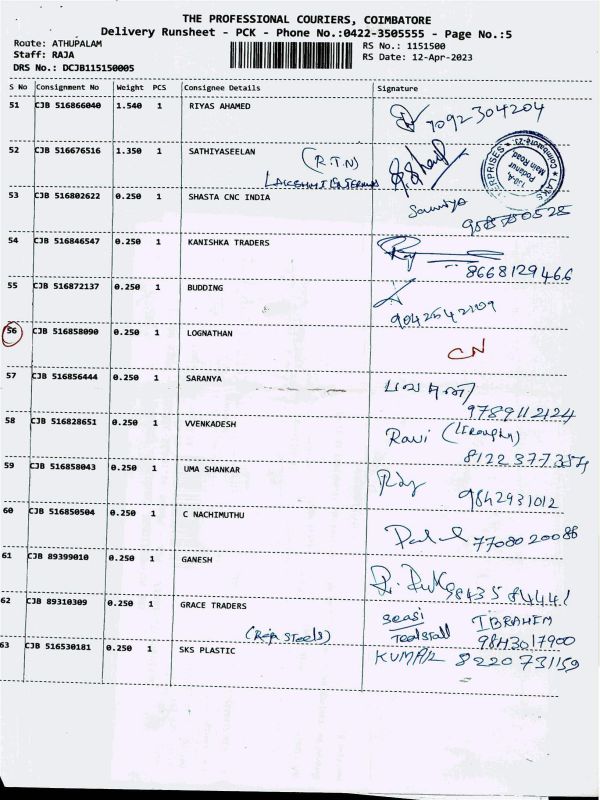 THE PROFESSIONAL COURIERS, COIMBATORE
Delivery Runsheet - PCK - Phone No.:0422-3505555 - Page No.:5
Route: ATHUPALAM
Staff: RAJA
DRS No.: DCJB115150005
RS No.: 1151500
RS Date: 12-Apr-2023
S No Consignment No Weight PCS Consignee Details Signature
51 CJB 516866040 1.540 1 RIYAS AHAMED 7092304204
52 CJB 516676516 1.350 1 SATHIYASEELAN (R.T.N)
53 CJB 516802622 0.250 1 SHASTA CNC INDIA Sowmiya
54 CJB 516846547 0.250 1 KANISHKA TRADERS 8668129466
55 CJB 516872137 0.250 1 BUDDING 9042542109
56 CJB 516858090 0.250 1 LOGNATHAN CN
57 CJB 516856444 0.250 1 SARANYA 9789112124
58 CJB 516828651 0.250 1 VVENKADESH Ravi
8122377354
59 CJB 516858043 0.250 1 UMA SHANKAR 9842931012
60 CJB 516850504 0.250 1 C NACHIMUTHU 7708020086
61 CJB 89399010 0.250 1 GANESH
62 CJB 89310309 0.250 1 GRACE TRADERS IBRAHIM
9843017900
63 CJB 516530181 0.250 1 SKS PLASTIC KUMAR 8220731159